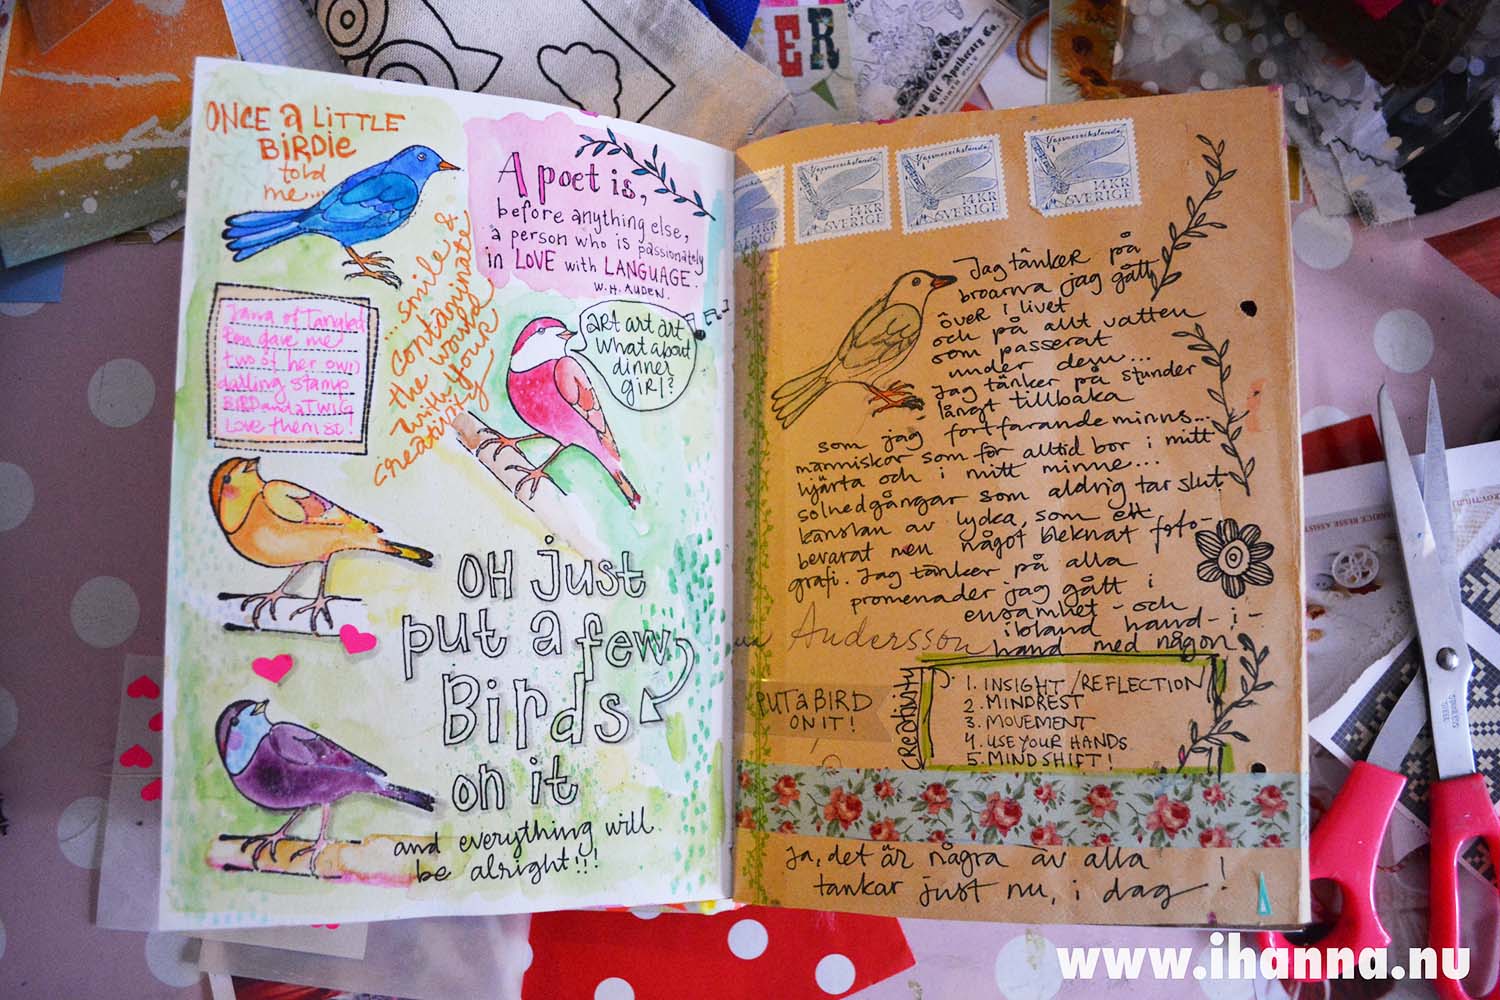 ER
Old Apothecary Co.
ONCE a LITTLE
BIRDIE
told
me...
...smile &
contaminate
the world
with your
creativity
A poet is,
before anything else,
a person who is passionately
in LOVE with LANGUAGE.
W.H. AUDEN.
gave me
two of her own
darling stamp
BIRD and a TWIG
Love them st!
art art art
what about
dinner
girl?
OH just
put a few
Birds
on it
and everything will
be alright!!!
14 KR
SVERIGE
14 KR
SVERIGE
14 KR
SVERIGE
Jag tänker på
broarna jag gått
över i livet
och på allt vatten
som passerat
under dem...
Jag tänker på stunder
långt tillbaka
som jag fortfarande minns...
människor som för alltid bor i mitt
hjärta och i mitt minne...
solnedgångar som aldrig tar slut
känslan av lycka, som ett
bevarat men något bleknat foto-
grafi. Jag tänker på alla
promenader jag gått i
ensamhet - och
ibland hand-i-
hand med någon
Andersson
PUT a BIRD
ON IT!
CREATIVITY
1. INSIGHT/REFLECTION
2. MINDREST
3. MOVEMENT
4. USE YOUR HANDS
5. MINDSHIFT!
Ja, det är några av alla
tankar just nu, i dag!
www.ihanna.nu